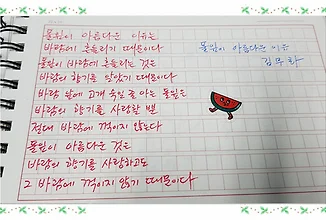 풀잎이 아름다운 이유는
바람에 흔들리기 때문이다
풀잎이 바람에 흔들리는 것은
바람의 향기를 알았기 때문이다
바람 앞에 고개 숙일 줄 아는 풀잎은
바람의 향기를 사랑할 뿐
절대 바람에 꺾이지 않는다
풀잎이 아름다운 것은
바람의 향기를 사랑하고도
그 바람에 꺾이지 않기 때문이다
풀잎이 아름다운 이유